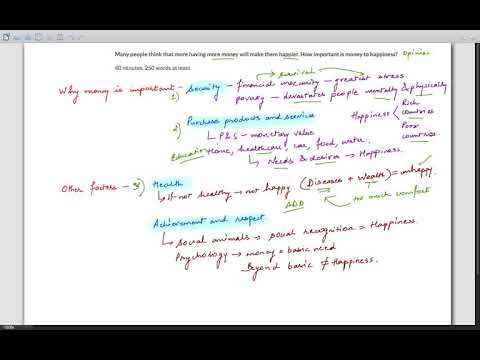 Many people think that more having more money will make them happier. How important is money to happiness? Opinion
40 minutes, 250 words at least.
Why money is important - 1) Security - financial insecurity - greatest stress
survival
povary - devastates people mentally & physically
2) Purchase products and services
↳ P&S - monetary value
Education Home, healthcare, car, food, water
↳ Needs & desires → Happiness.
Happiness
Rich countries
Poor countries
Other factors - 3) Health
↳ If not healthy → not happy (Diseases + Wealth) = unhappy.
ADD
too much comfort
Achievement and respect
↳ Social animals → social recognition = Happiness.
Psychology → money = basic need
Beyond basic ≠ Happiness.